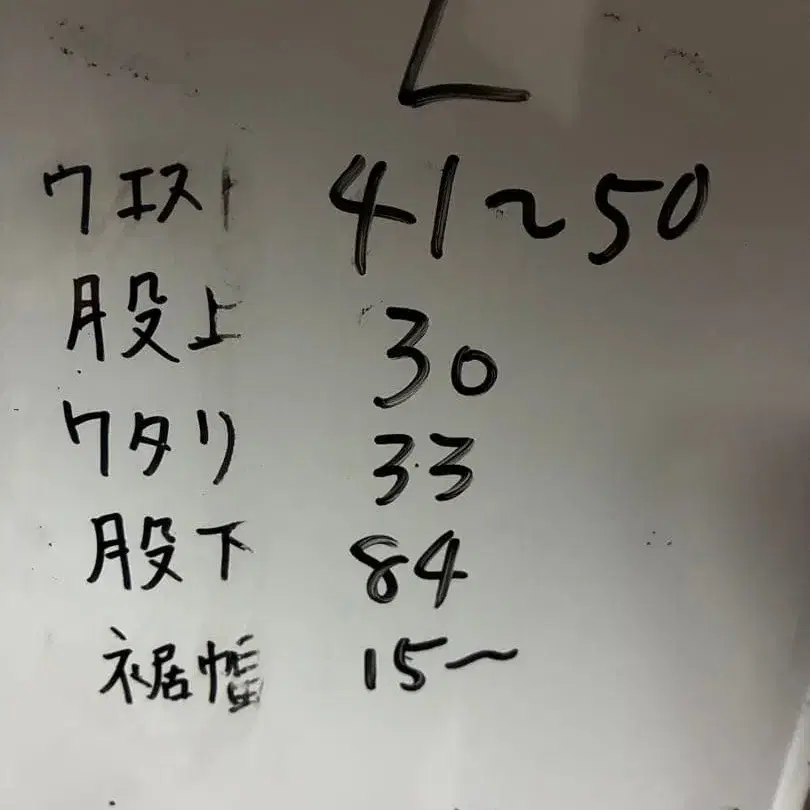 L
ウエスト 41～50
股上 30
ワタリ 33
股下 84
裾幅 15～